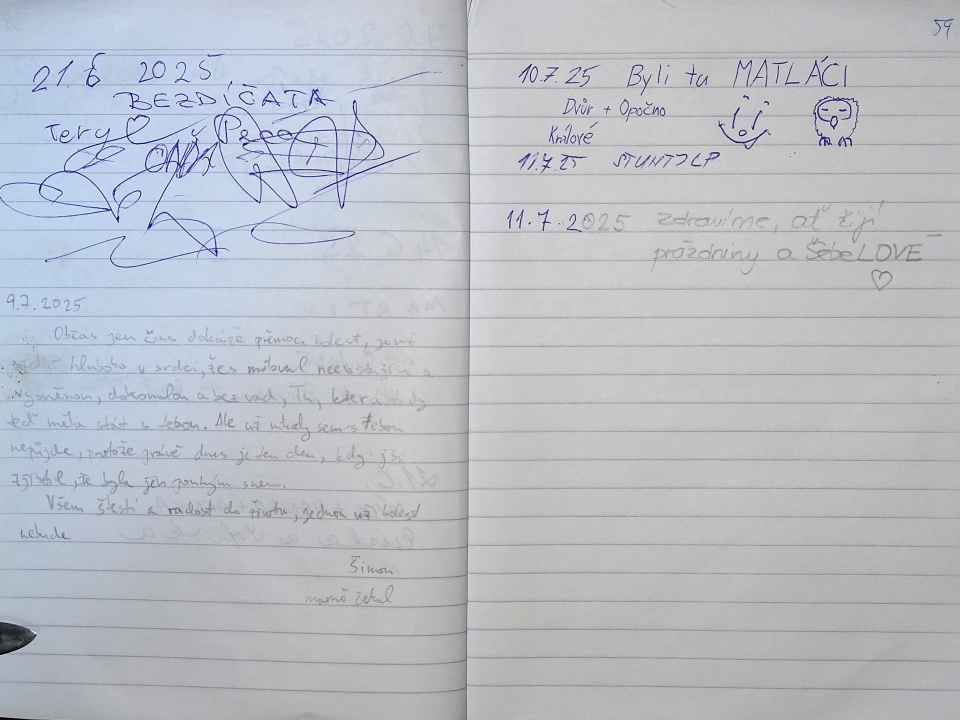 21.6 2025
BEZDÍČATA
9.7.2025
Občas jen čas dokáže přemoci bolest,
hluboko v srdci, žes miloval
dokonalou a bez vad, Tu, která tady
teď měla stát s tebou. Ale už nikdy sem s Tebou
nepřijde, protože právě dnes je ten den, kdy jsi
zjistil, že byla jen pouhým snem.
Všem štěstí a radost do života, jednou už bolest
nebude
Šimon
marně čekal
59
10.7.25 Byli tu MATLÁCI
Dvůr + Opočno
Králové
11.7.25
11.7.2025 Zdravíme, ať žijí
prázdniny a LOVE